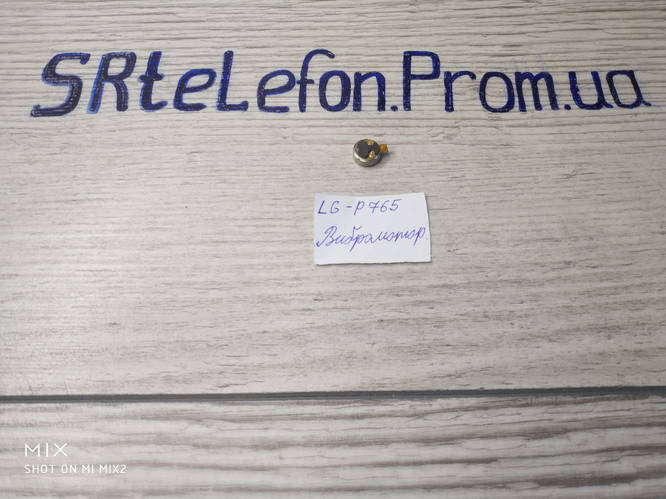 SRteLefon.Prom.ua
LG-P765
Вибромотор.
MIX
SHOT ON MI MIX2